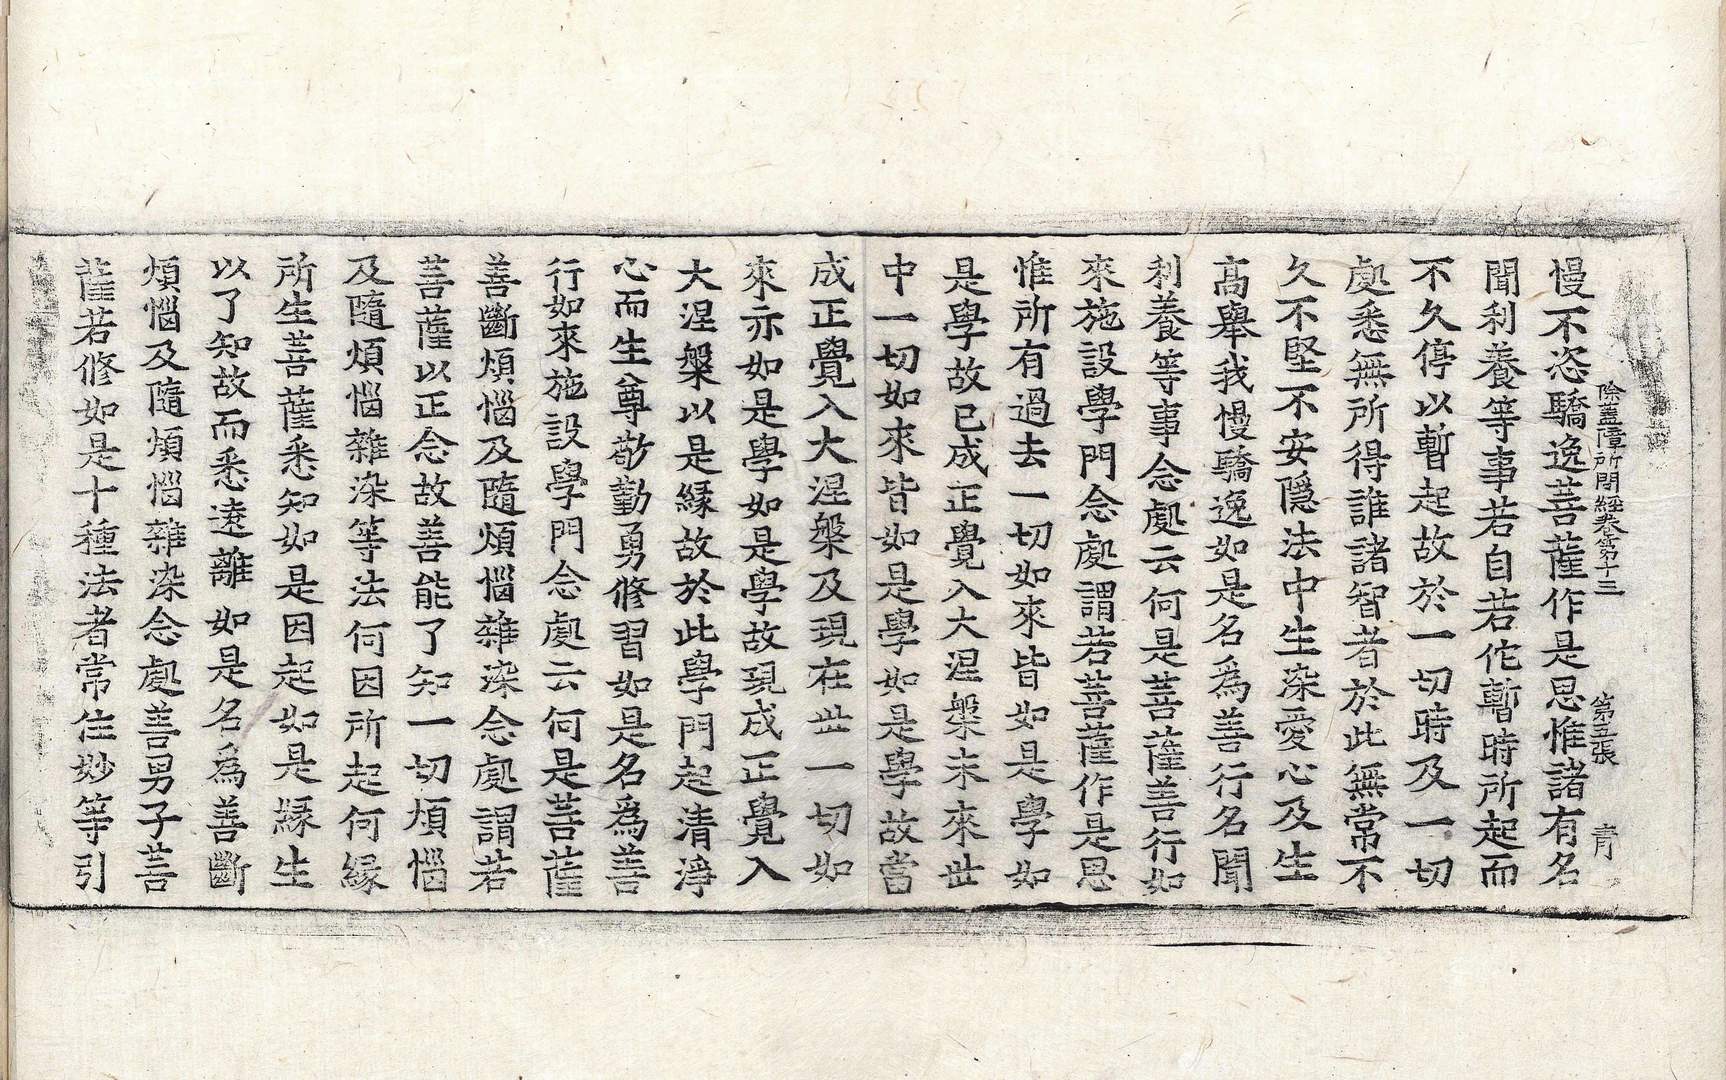 除蓋障所問經卷第十三 第五張 青
慢不恣驕逸菩薩作是思惟諸有名
聞利養等事若自若佗暫時所起而
不久停以暫起故於一切時及一切
處悉無所得誰諸智者於此無常不
久不堅不安隱法中生染愛心及生
高舉我慢驕逸如是名為善行名聞
利養等事念處云何是菩薩善行如
來施設學門念處謂若菩薩作是思
惟所有過去一切如來皆如是學如
是學故已成正覺入大涅槃未來世
中一切如來皆如是學如是學故當
成正覺入大涅槃及現在世一切如
來亦如是學如是學故現成正覺入
大涅槃以是緣故於此學門起清淨
心而生尊敬勤勇修習如是名為善
行如來施設學門念處云何是菩薩
善斷煩惱及隨煩惱雜染念處謂若
菩薩以正念故善能了知一切煩惱
及隨煩惱雜染等法何因所起何緣
所生菩薩悉知如是因起如是緣生
以了知故而悉遠離如是名為善斷
煩惱及隨煩惱雜染念處善男子菩
薩若修如是十種法者常住妙等引